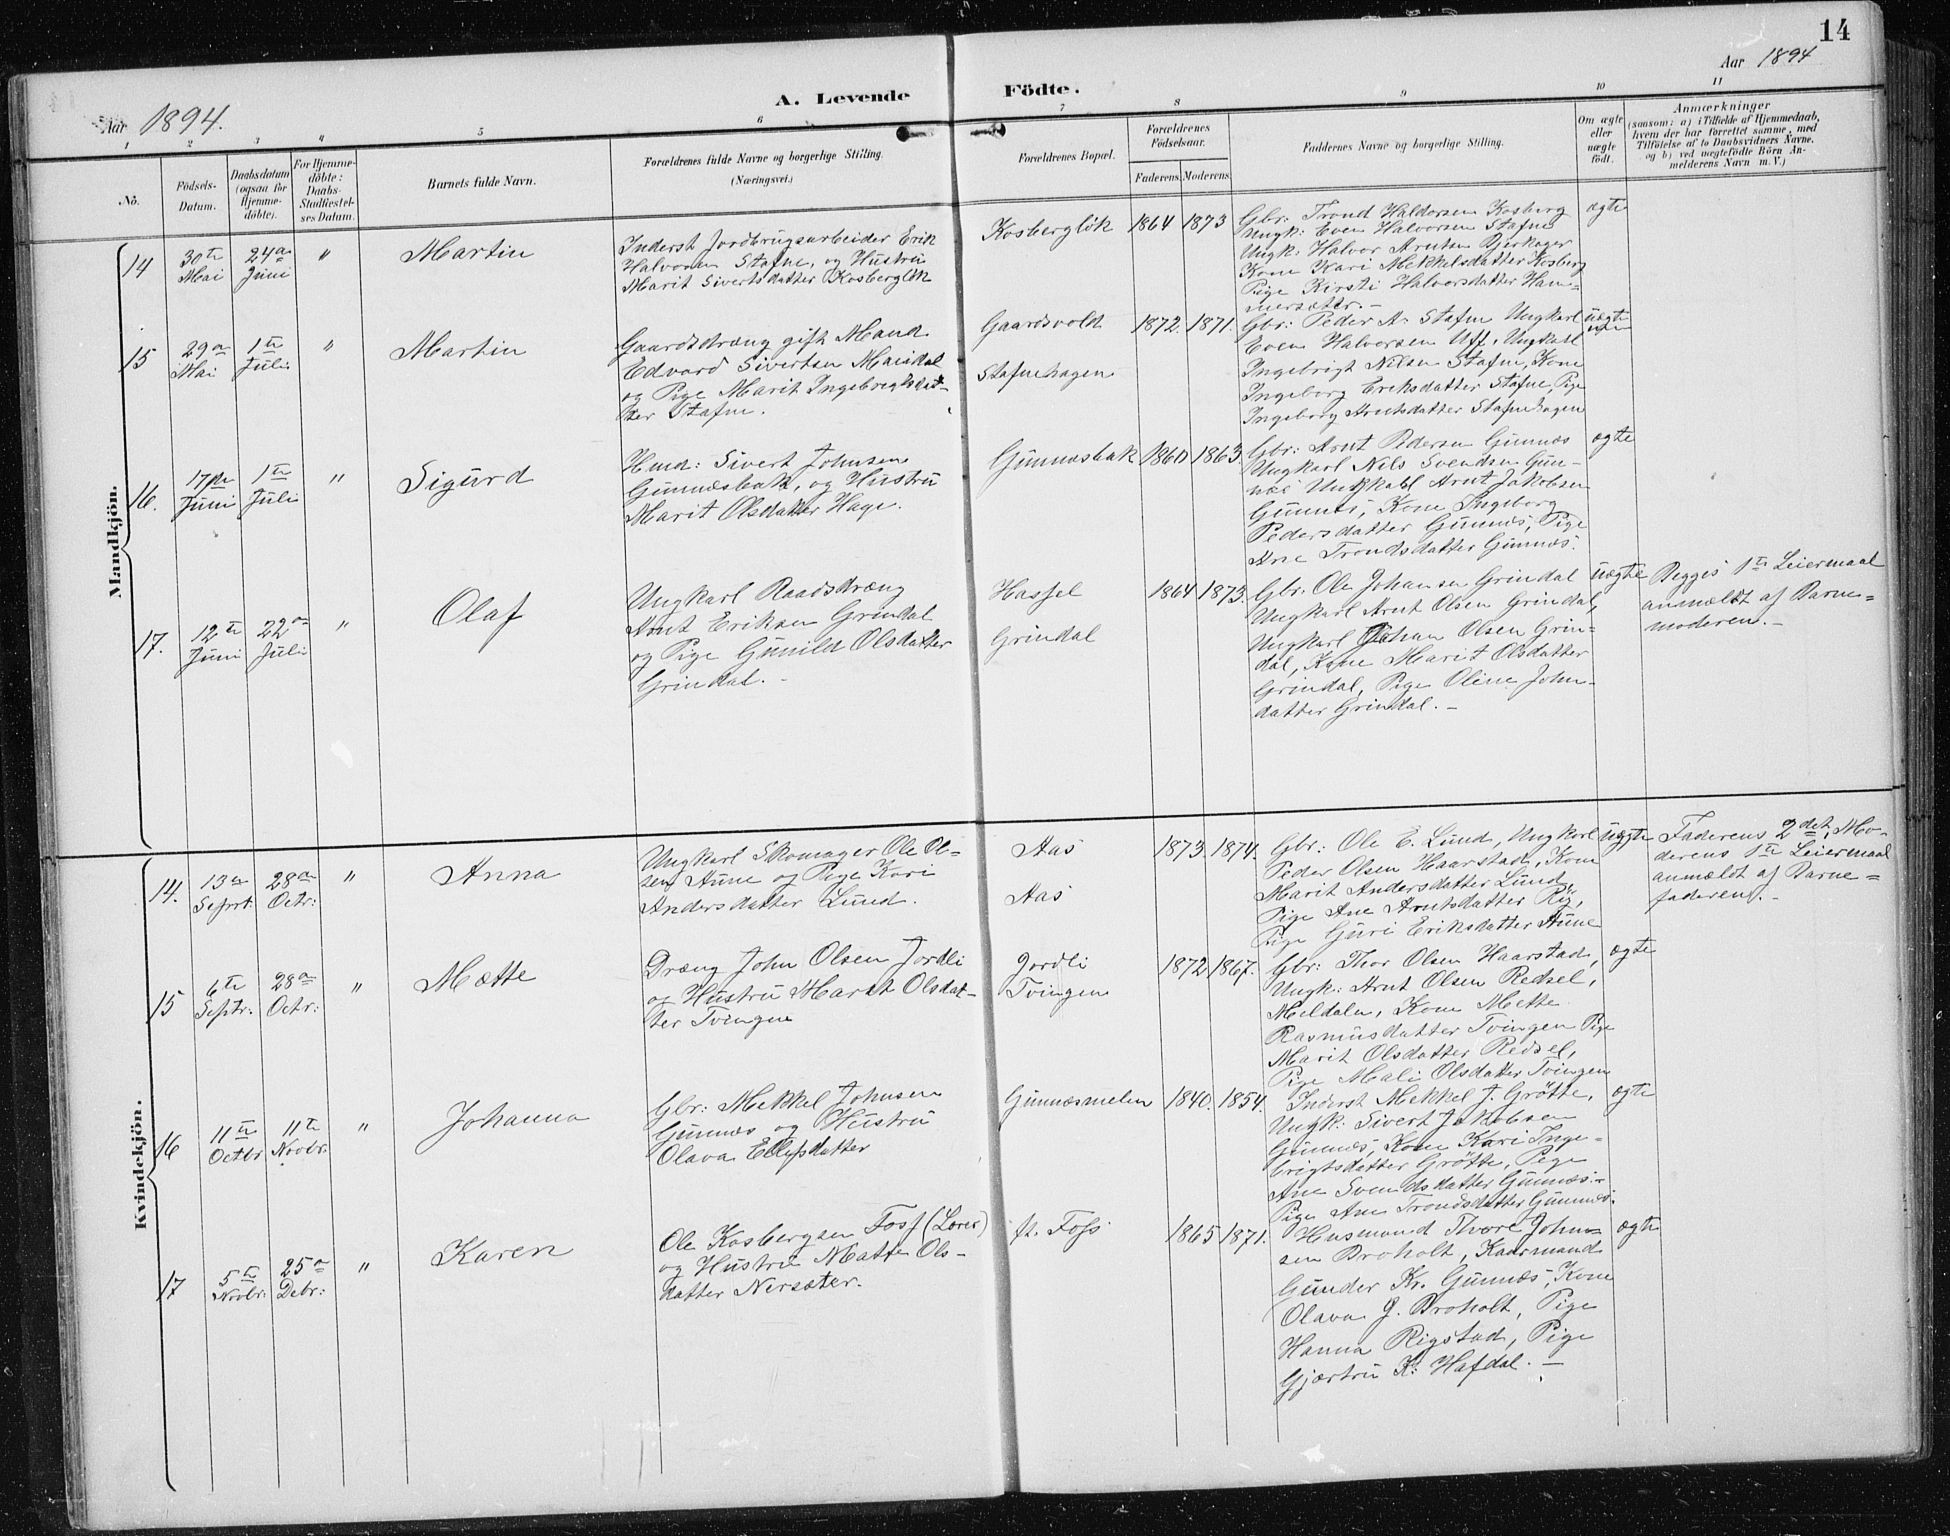 14
Aar 1894.
A. Levende Födte.
Aar 1894
1 2 3 4 5 6 7 8 9 10 11
No.
Födsels-
Datum.
Daabsdatum
(ogsaa for
Hjemme-
döbte).
For Hjemme-
döbte:
Daabs-
Stadfestel-
ses Datum.
Barnets fulde Navn.
Forældrenes fulde Navne og borgerlige Stilling.
(Næringsvei.)
Forældrenes Bopæl.
Forældrenes
Födselsaar.
Faderens. Moderens.
Faddernes Navne og borgerlige Stilling.
Om ægte
eller
uægte
födt.
Anmærkninger
(saasom: a) i Tilfælde af Hjemmedaab,
hvem der har forrettet samme, med
Tilföielse af to Daabsvidners Navne,
og b) ved uægtefödte Börn An-
melderens Navn m. V.)
Mandkjön.
14
30te
Mai
24de
Juni
"
Martin
Inderst Jordbrugsarbeider Erik
Halvorsen Stafne, og Hustru
Marit Sivertsdatter Kosbergløk
Kosbergløk
1864
1873
Gbr: Trond Haldorsen Kosberg
Ungk: Even Halvorsen Stafne
Ungk: Halvor Arntsen Bjerkager
Kone Kari Mekkelsdatter Kosberg
Pige Kirsti Halvorsdatter Ham-
mersætter.-
ægte
15
29de
Mai
1te
Juli
"
Martin
Gaardsdræng gift Mand
Edvard Sivertsen Mærdal
og Pige Marit Ingebrigtsdat-
ter Stafne.
Gaardsvold
Stafnehagen
1872.
1871.
Gbr: Peder A. Stafne Ungkarl
Even Halvorsen Uff, Ungkarl
Ingebrigt Nilsen Stafne, Kone
Ingeborg Eriksdatter Stafne, Pige
Ingeborg Arntsdatter Stafnehagen
uægte
16.
17de
Juni
1te
Juli
"
Sigurd
Husd: Sivert Johnsen
Gunnæsbak, og Hustru
Marit Olsdatter Hage.
Gunnæsbak
1860
1863
Gbr: Arnt Pedersen Gunnæs
Ungkarl Nils Svendsen Gun-
næs Ungkarl Arnt Jakobsen
Gunnæs, Kone Ingeborg
Pedersdatter Gunnæs, Pige
Ane Trondsdatter Gunnæs.
ægte
17.
12te
Juni
22de
Juli
"
Olaf
Ungkarl Baadsdræng
Arnt Eriksen Grindal
og Pige Gunild Olsdatter
Grindal.-
Hassel
Grindal
1864
1873.
Gbr. Ole Johansen Grindal
Ungkarl Arnt Olsen Grindal,
Ungkarl Johan Olsen Grin-
dal, Kone Marit Olsdatter
Grindal, Pige Oline John-
datter Grindal.-
uægte
Begges 1te Leiermaal
anmeldt af Barne-
moderen.-
Kvindekjön.
14.
13de
Septr:
28de
Octr:
"
Anna
Ungkarl Skomager Ole Ol-
sen Aune og Pige Kari
Andersdatter Lund.
Aas
Aas
1873.
1874.
Gbr: Ole E. Lund, Ungkarl
Peder Olsen Haarstad, Kone
Marit Andersdatter Lund
Pige Ane Arntsdatter Rø,
Pige Guri Eriksdatter Aune
uægte
Faderens 2det, Mo-
derens 1te Leiermaal
anmeldt af Barne-
faderen.-
15
6te
Septr:
28de
Octr:
"
Mætte
Dræng John Olsen Jordli
og Hustru Marit Olsdat-
ter Tvingen
Jordli
Tvingen
1872
1867.
Gbr: Thor Olsen Haarstad,
Ungk: Arnt Olsen Redsel,
Meldalen, Kone Mette
Rasmusdatter Tvingen Pige
Marit Olsdatter Redsel,
Pige Mali Olsdatter Tvingen
ægte
16
11te
Octbr
11te
Novbr.
"
Johanna
Gbr: Mekkel Johnsen
Gunnæs og Hustru
Olava Ellefsdatter
Gunnæsmelen
1840.
1854.
Inderst Mekkel J. Grøtte,
Ungk: Sivert Jakobsen
Gunnæs, Kone Kari Inge-
brigtsdatter Grøtte, Pige
Ane Svendsdatter Gunnæs.-
Pige Ane Trondsdatter Gunnæs.
ægte
17
5te
Novbr:
25de
Debr:
"
Karen
Ole Kosbergsen Foss (Lærer)
og Hustru Mætte Ols-
datter Nersæter.
pt. Foss
1865
1871.
Husmand Thore John-
sen Broholt, Kaarmand
Gunder Kr. Gunnæs, Kone
Olava J. Broholt, Pige
Hanna Rigstad, Pige
Gjærtru K: Hafdal.-
ægte